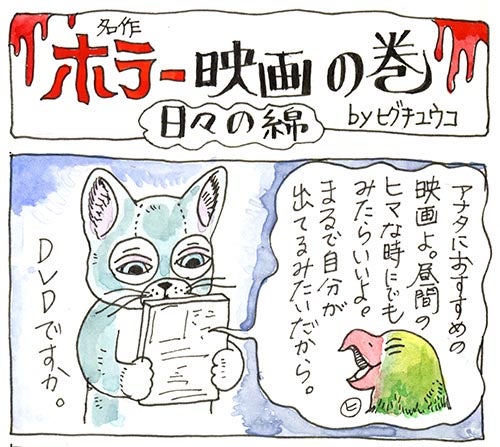 名作
ホラー映画の巻
日々の綿
byヒグチユウコ
アナタにおすすめの
映画よ。昼間の
ヒマな時にでも
みたらいいよ。
まるで自分が
出てるみたいだから。
DVDですか。
ヒ